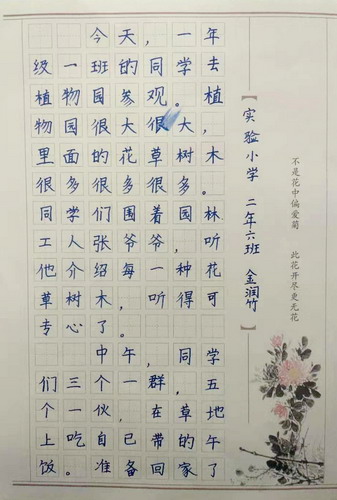 今天，一年
级一班的同学去
植物园参观。植
物园很大很大，
里面的花草树木
很多很多很多。
同学们围着园林
工人张爷爷，听
他介绍每一种花
草树木，听得可
专心了。
中午，同学
们三个一群，五
个一伙，在草地
上吃自己带的午
饭。准备回家了
【实验小学 二年六班 金润竹】
不是花中偏爱菊 此花开尽更无花